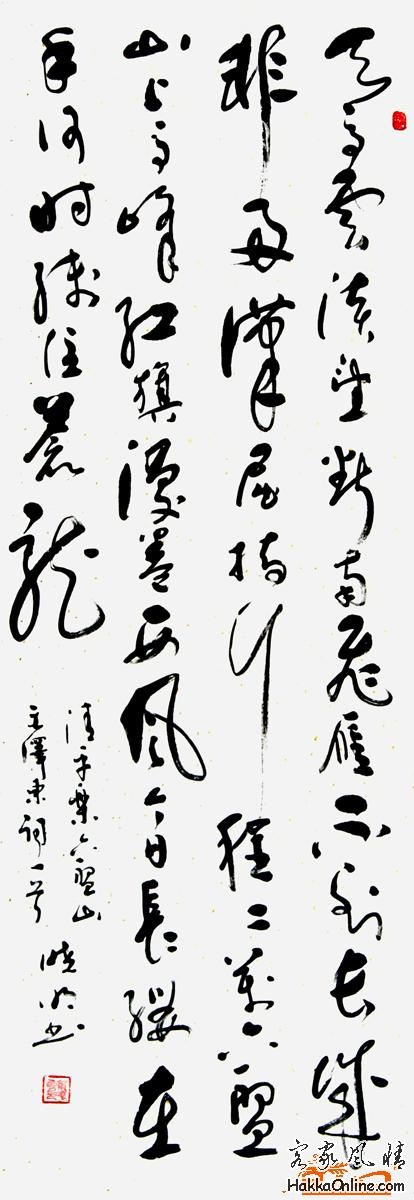 天高雲淡望斷南飛雁不到长城
非好漢屈指行程二萬六盤
山上高峰红旗漫卷西风今日長缨在
手何时缚住蒼龙
清平樂六盤山
毛澤東詞一首 晓明书
客家风情
HakkaOnline.com